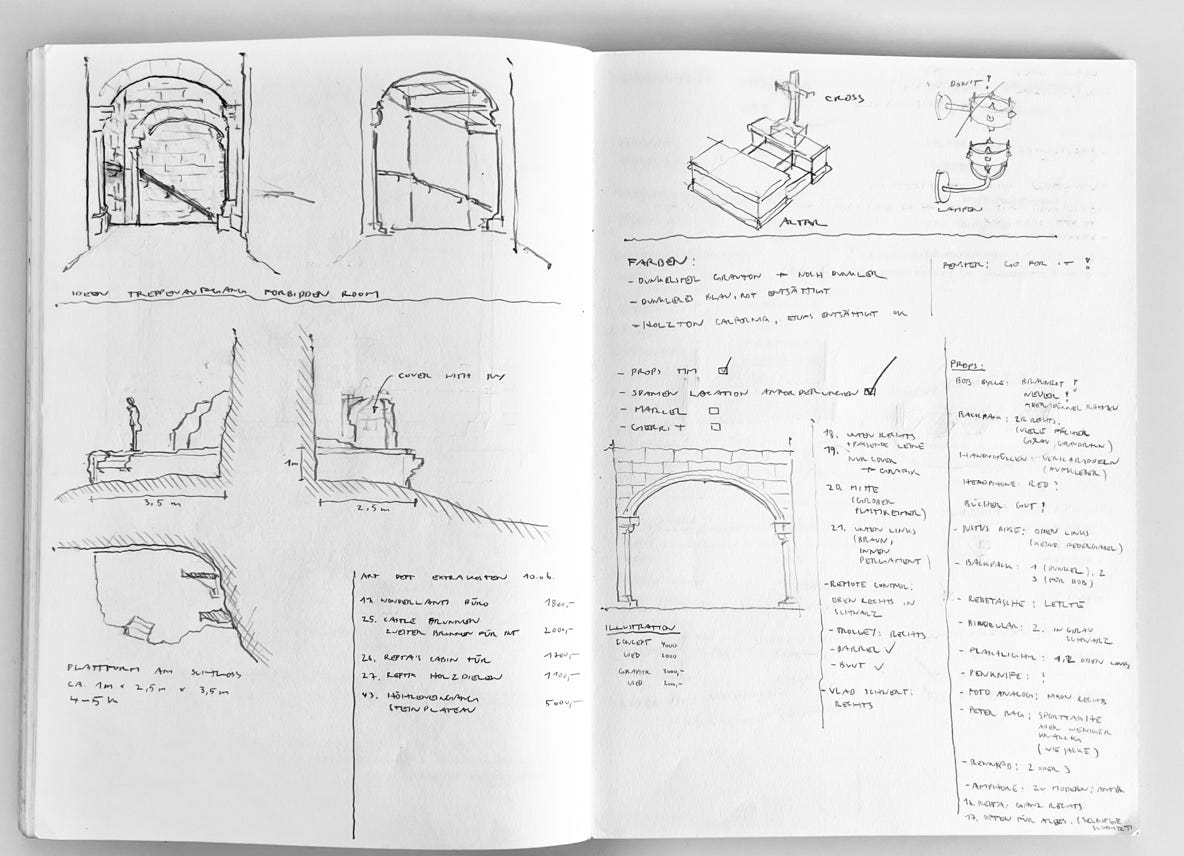 IDEEN TREPPENAUFGANG FORBIDDEN ROOM
COVER WITH IVY
1m
3,5 m
2,5 m
PLATTFORM AM SCHLOSS
CA. 1m x 2,5 m x 3,5 m
4-5 K
ART DEPT EXTRAKOSTEN 10.06.
17. WONDERLAND BÜRO 1800,-
25. CASTLE BRUNNEN
ZWEITER BRUNNEN FÜR INT 2000,-
26. REPTA'S CABIN TÜR 1200,-
27. REPTA HOLZDIELEN 1100,-
43. HÖHLENEINGANG
STEINPLATEAU 5000,-
CROSS
ALTAR
DON'T!
LAMPEN
FARBEN:
- DUNKELSTER GRAUTON + NOCH DUNKLER
- DUNKLERES BLAU, ROT ENTSÄTTIGT
- HOLZTON CALIFORNIA, ETWAS ENTSÄTTIGT OK
FENSTER: GO FOR IT!
- PROPS TIM
- LOCATION ANFORDERUNGEN
- MARCEL
- GERRIT
ILLUSTRATION
CONCEPT 4000
2000
GRAFIK 3000,-
200,-
18. UNTEN RECHTS
+ PASSENDE LEINE
19. NUR COVER
+ GRAFIK
20. MITTE
(GROßER
PLASTIKEIMER)
21. UNTEN LINKS
(BRAUN,
INNEN
PERGAMENT)
- REMOTE CONTROL:
OBEN RECHTS IN
SCHWARZ
- TROLLEY: RECHTS
- BARREL ✓
- BOOT ✓
- VLAD SCHWERT:
RECHTS
PROPS:
BOBS BRILLE: BRAUNROT!
NEUER!
ABER DÜNNER RAHMEN
BACKPACK: 2R RECHTS,
(VIELE FÄCHER
GRAU, GRAUBRAUN)
HANDYHÜLLEN: VERSCHRADDELN
(AUFKLEBER)
HEADPHONE: RED?
BÜCHER: GUT!
- JUSTUS BIKE: OBEN LINKS
(KEINE FEDERGABEL)
- BACKPACK: 1 (DUNKEL), 2
3 (FÜR BOB)
- REISETASCHE: LETZTE
- BINOCULAR: 2. IN GRAU
SCHWARZ
- FLASHLIGHT: 1, 2 OBEN LINKS
- PENKNIFE: ?
- FOTO ANALOG: NIKON RECHTS
- PETER BAG: SPORTTASCHE
ABER WENIGER
KNALLIG
(WIE JACKE)
- RENNRAD: 2 ODER 3
- AMPHORE: ZU MODERN; ANTIK
16. REPTA: GANZ RECHTS
17. OFFEN FÜR ALLES.